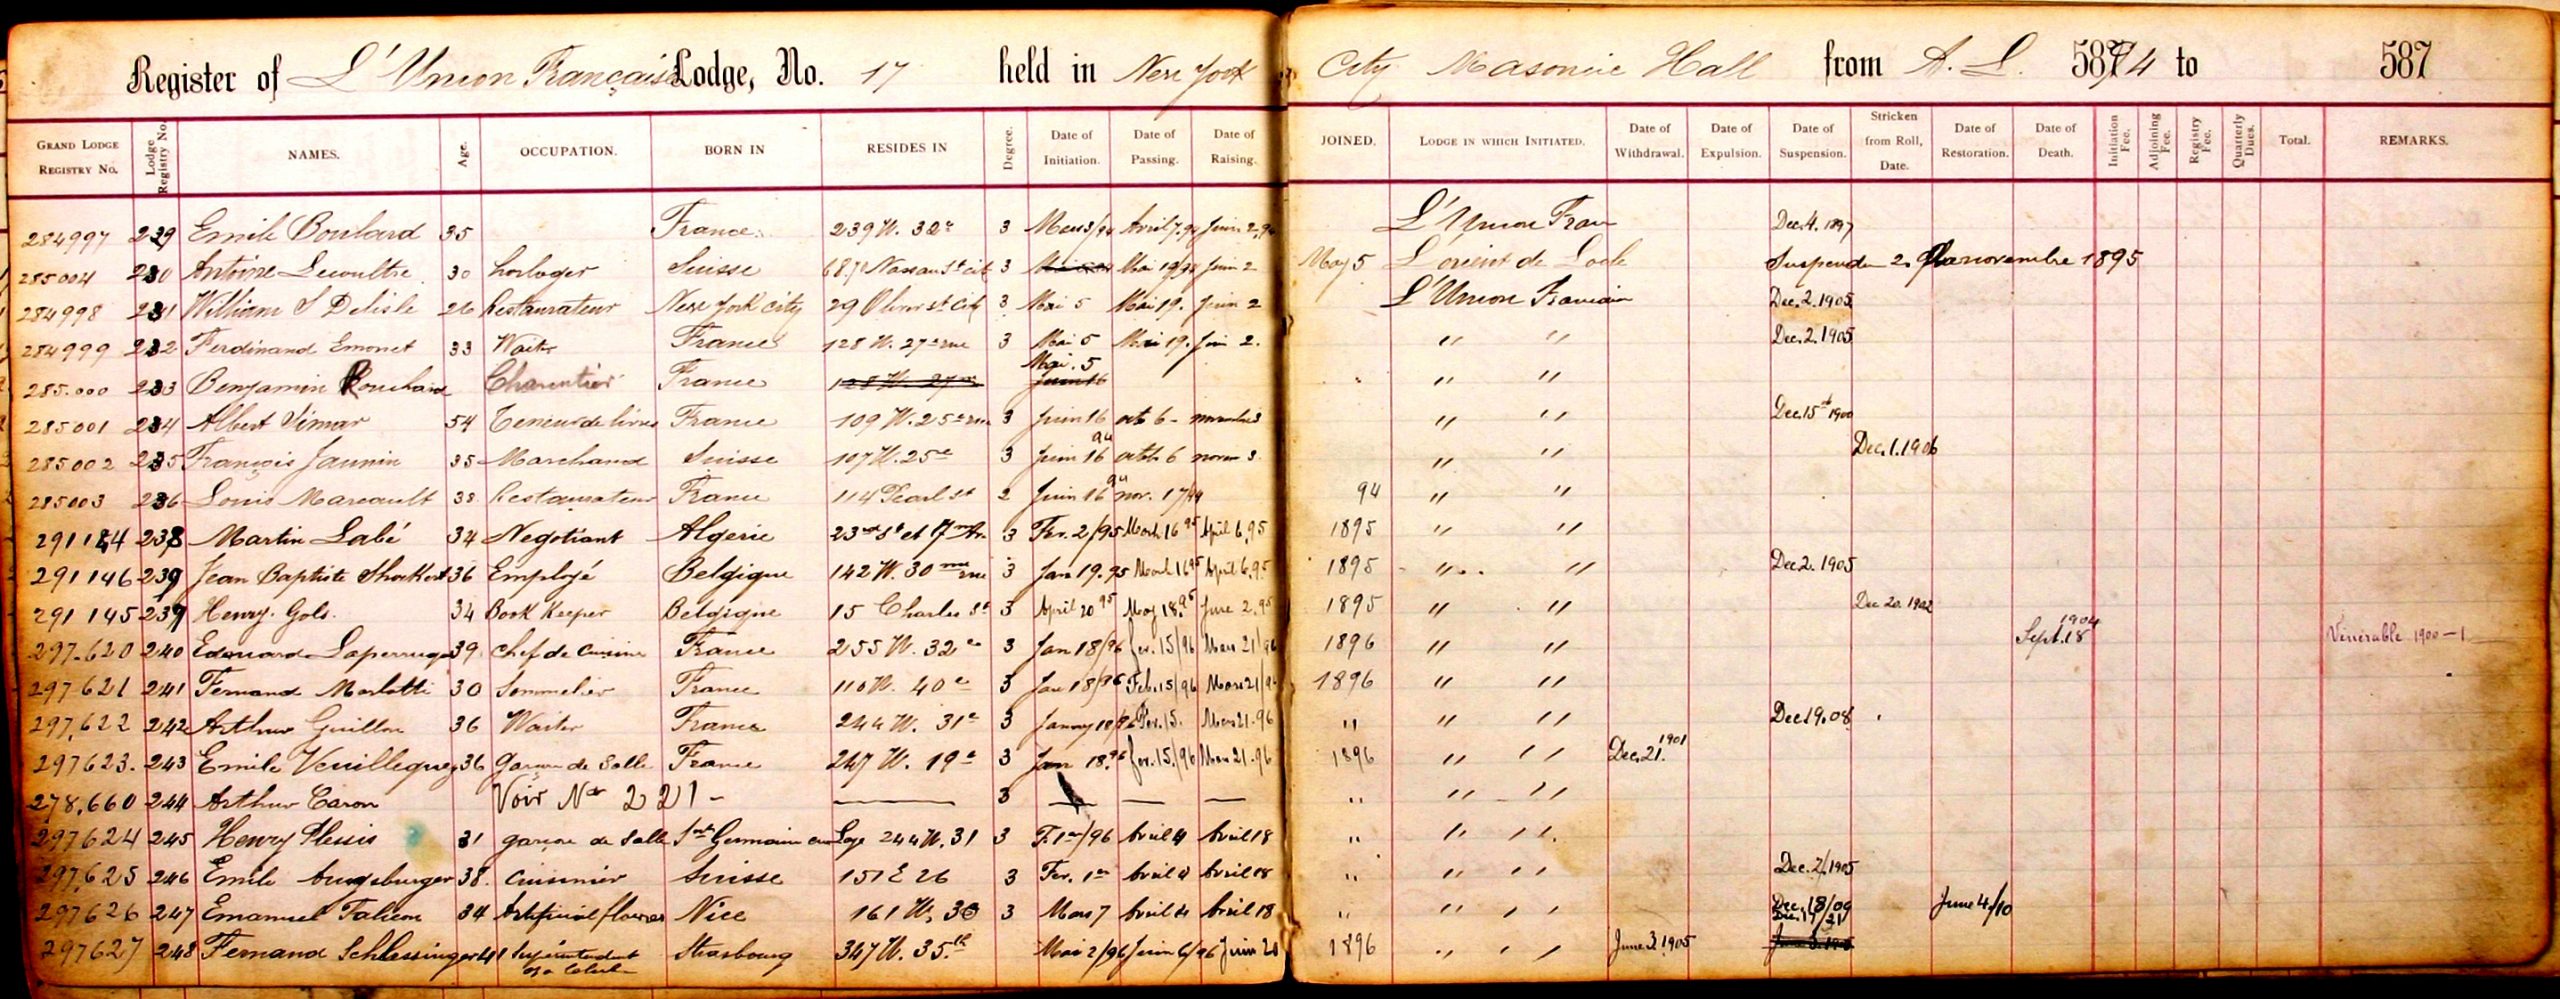 Register of L'Union Française Lodge, No. 17 held in New York City Masonic Hall from A. L. 5874 to 587
GRAND LODGE REGISTRY NO. Lodge Registry No. NAMES. Age. OCCUPATION. BORN IN RESIDES IN Degree. Date of Initiation. Date of Passing. Date of Raising. JOINED. LODGE IN WHICH INITIATED. Date of Withdrawal. Date of Expulsion. Date of Suspension. Stricken from Roll, Date. Date of Restoration. Date of Death. Initiation Fee. Adjoining Fee. Registry Fee. Quarterly Dues. Total. REMARKS.
284997 229 Emile Boulard 35 France 239 W. 32e 3 Mars 3/94 Avril 7.94 Juin 2.94 L'Union Fran Dec. 4. 1897
285004 230 Antoine Lecoultre 30 horloger Suisse Nassau St city 3 Mai 19/94 Juin 2 May 5 L'orient de Locle Suspendu 2 novembre 1895
284998 231 William S Delisle 26 Restaurateur New York city 29 Oliver st City 3 Mai 5 Mai 19. Juin 2 L'Union Francaise Dec. 2. 1905
284999 232 Ferdinand Emonet 33 Waiter France 128 W. 27e rue 3 Mai 5 Mai 19. Juin 2. " " Dec. 2. 1905
285.000 233 Benjamin Rouchaud Charentier France 128 W. 27e Mai. 5 Juin 16 " "
285001 234 Albert Simar 54 Teneur de livres France 109 W. 25e rue 3 Juin 16 oct 6 - novembre 3 " " Dec. 15th 1900
285002 235 François Jaunin 35 Marchand Suisse 107 W. 25e 3 Juin 16 94 octb 6 novem 3 " " Dec. 1. 1906
285003 236 Louis Mareault 38 Restaurateur France 114 Pearl st 2 Juin 16 94 nov. 17/94 94 " "
291184 238 Martin Labé 34 Negotiant Algerie 23rd St et 7me Av. 3 Fev. 2/95 March 16 95 April 6, 95 1895 " "
291146 239 Jean Baptiste 36 Employé Belgique 142 W. 30me rue 3 Jan 19. 95 March 16 95 April 6. 95 1895 " " Dec 2. 1905
291145 239 Henry Gols. 34 Book Keeper Belgique 15 Charles St 3 April 20 95 May 18. 95 June 2. 95 1895 " " Dec 20. 1902
297.620 240 Edouard Laperruque 39 chef de cuisine France 255 W. 32e 3 Jan 18/96 fev. 15/96 Mars 21/96 1896 " " Sept. 18 1904 Vénérable 1900-1
297.621 241 Fernand Marlotti 30 Sommelier France 110 W. 40e 3 Jan 18/96 Feb. 15/96 Mars 21/96 1896 " "
297.622 242 Arthur Guillon 36 Waiter France 244 W. 31e 3 January 18/96 Fev. 15. Mars 21. 96 " " " Dec 19. 08
297623. 243 Emile Veuillequez 36 Garçon de Salle France 247 W. 19e 3 Jan 18. 96 fev. 15. /96 Mars 21. 96 1896 " " Dec. 21. 1901
278.660 244 Arthur Caron Voir No 221 - — 3 — — — " " "
297624 245 Henry Plessis 31 garçon de Salle St Germain en Laye 244 W. 31 3 F. 1er/96 Avril 4 Avril 18 " " "
297.625 246 Emile Augsburger 38. cuisinier Suisse 151 E 26 3 Fev. 1er Avril 4 Avril 18 " " " Dec. 2/1905
297626 247 Emanuel Falicon 34 Artificial flowers Nice 161 W. 30 3 Mars 7 Avril 4 Avril 18 " " " Dec. 18/09 Dec. 17/21 June 4/10
297627 248 Fernand Schlessinger 41 Superintendent of a Club Strasbourg 347 W. 35.th Mai 2/96 Juin 6/96 Juin 20 1896 " " June 3. 1905 June 3. 1905